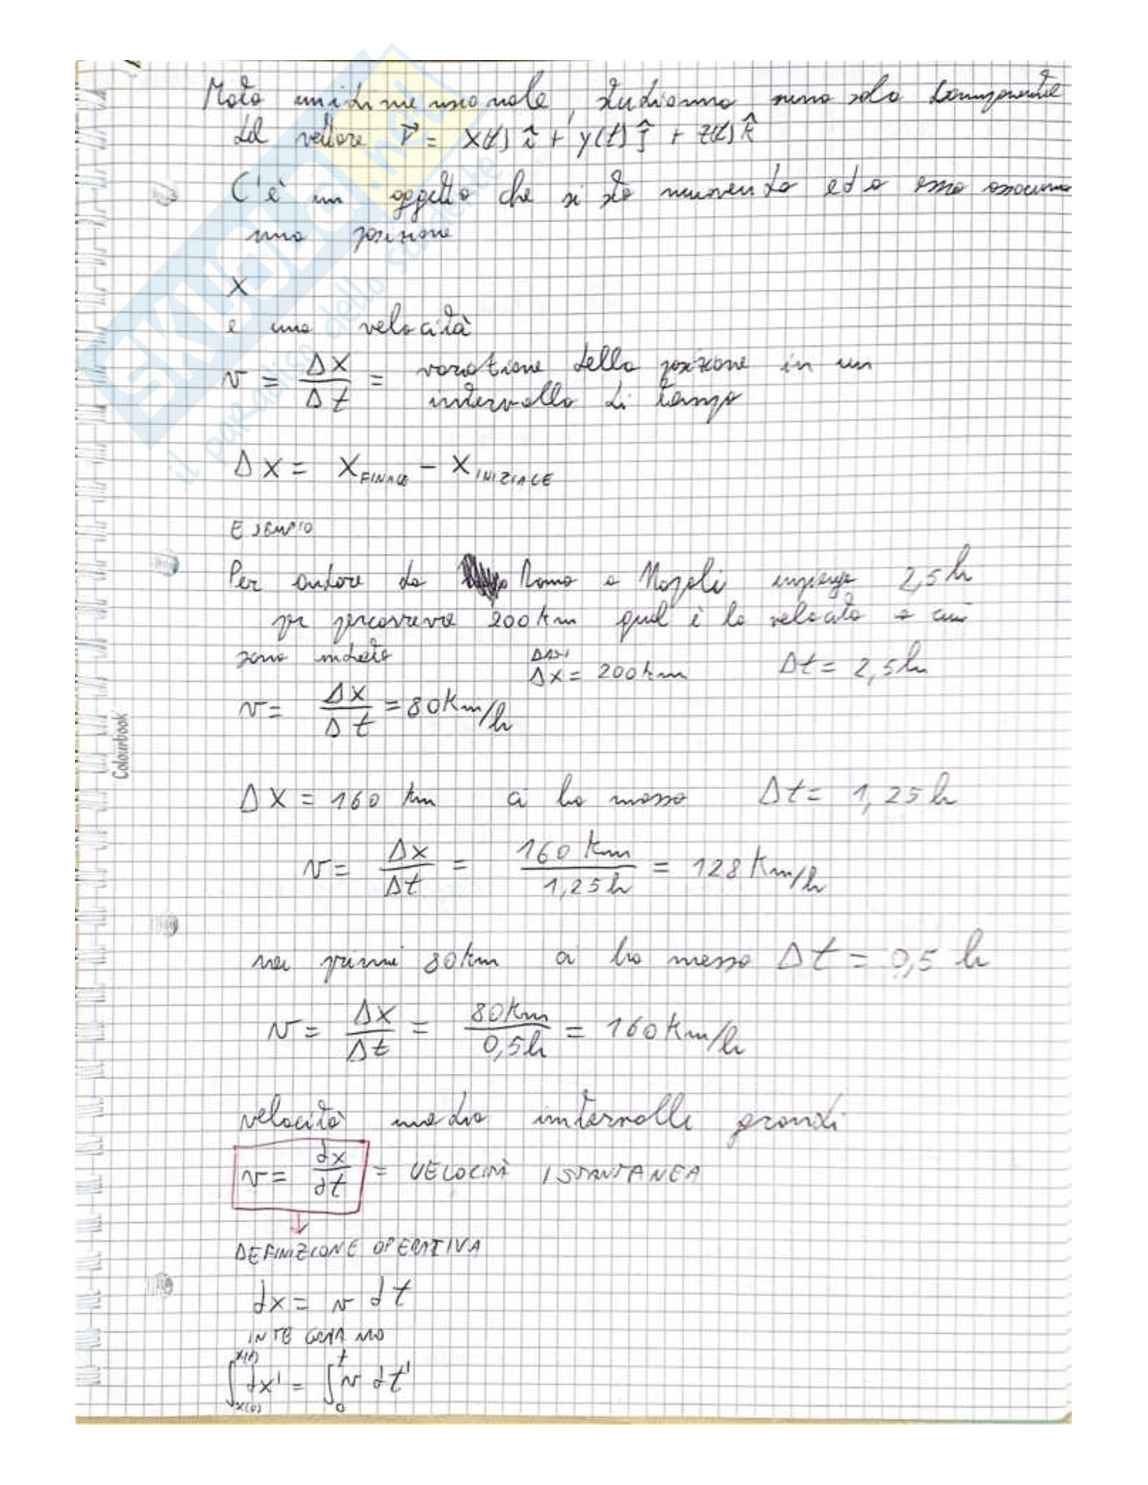 Moto unidimensionale, studiamo una sola componente
del vettore r⃗ = x(t) î + y(t) ĵ + z(t) k̂
C'è un oggetto che si sta muovendo ed a esso associamo
una posizione
X
e una velocità
v = Δx/Δt = variazione della posizione in un intervallo di tempo
Δx = X FINALE - X INIZIALE
ESEMPIO
Per andare da Roma a Napoli impiego 2,5 h
per percorrere 200 km qual è la velocità a cui
sono andato
Δx = 200 km Δt = 2,5 h
v = Δx/Δt = 80 Km/h
Δx = 160 km ci ho messo Δt = 1,25 h
v = Δx/Δt = 160 km/1,25 h = 128 Km/h
nei primi 80 km ci ho messo Δt = 0,5 h
v = Δx/Δt = 80 Km/0,5 h = 160 Km/h
velocità media intervalli grandi
v = dx/dt = VELOCITÀ ISTANTANEA
DEFINIZIONE OPERATIVA
dx = v dt
INTEGRIAMO
∫x(0)x(t) dx' = ∫0t v dt'
Colourbook
SKUOLA.net
il paradiso dello studente